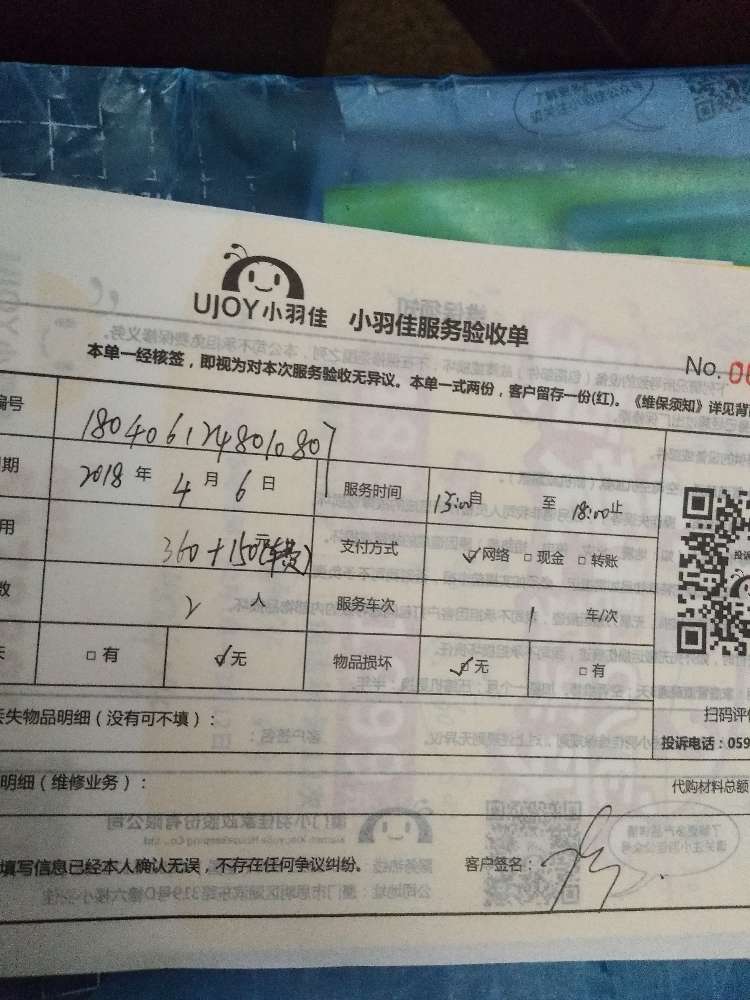 UJOY小羽佳 小羽佳服务验收单
No.
本单一经核签，即视为对本次服务验收无异议。本单一式两份，客户留存一份(红)。《维保须知》详见背
编号 180406124801080
期 2018 年 4 月 6 日 服务时间 15:00 自 至 18:00 止
用 360+150 支付方式 网络 现金 转账
数 2 人 服务车次 1 车/次
有 无 物品损坏 无 有
扫码评
丢失物品明细（没有可不填）：
投诉电话：059
明细（维修业务）： 代购材料总额
填写信息已经本人确认无误，不存在任何争议纠纷。 客户签名：